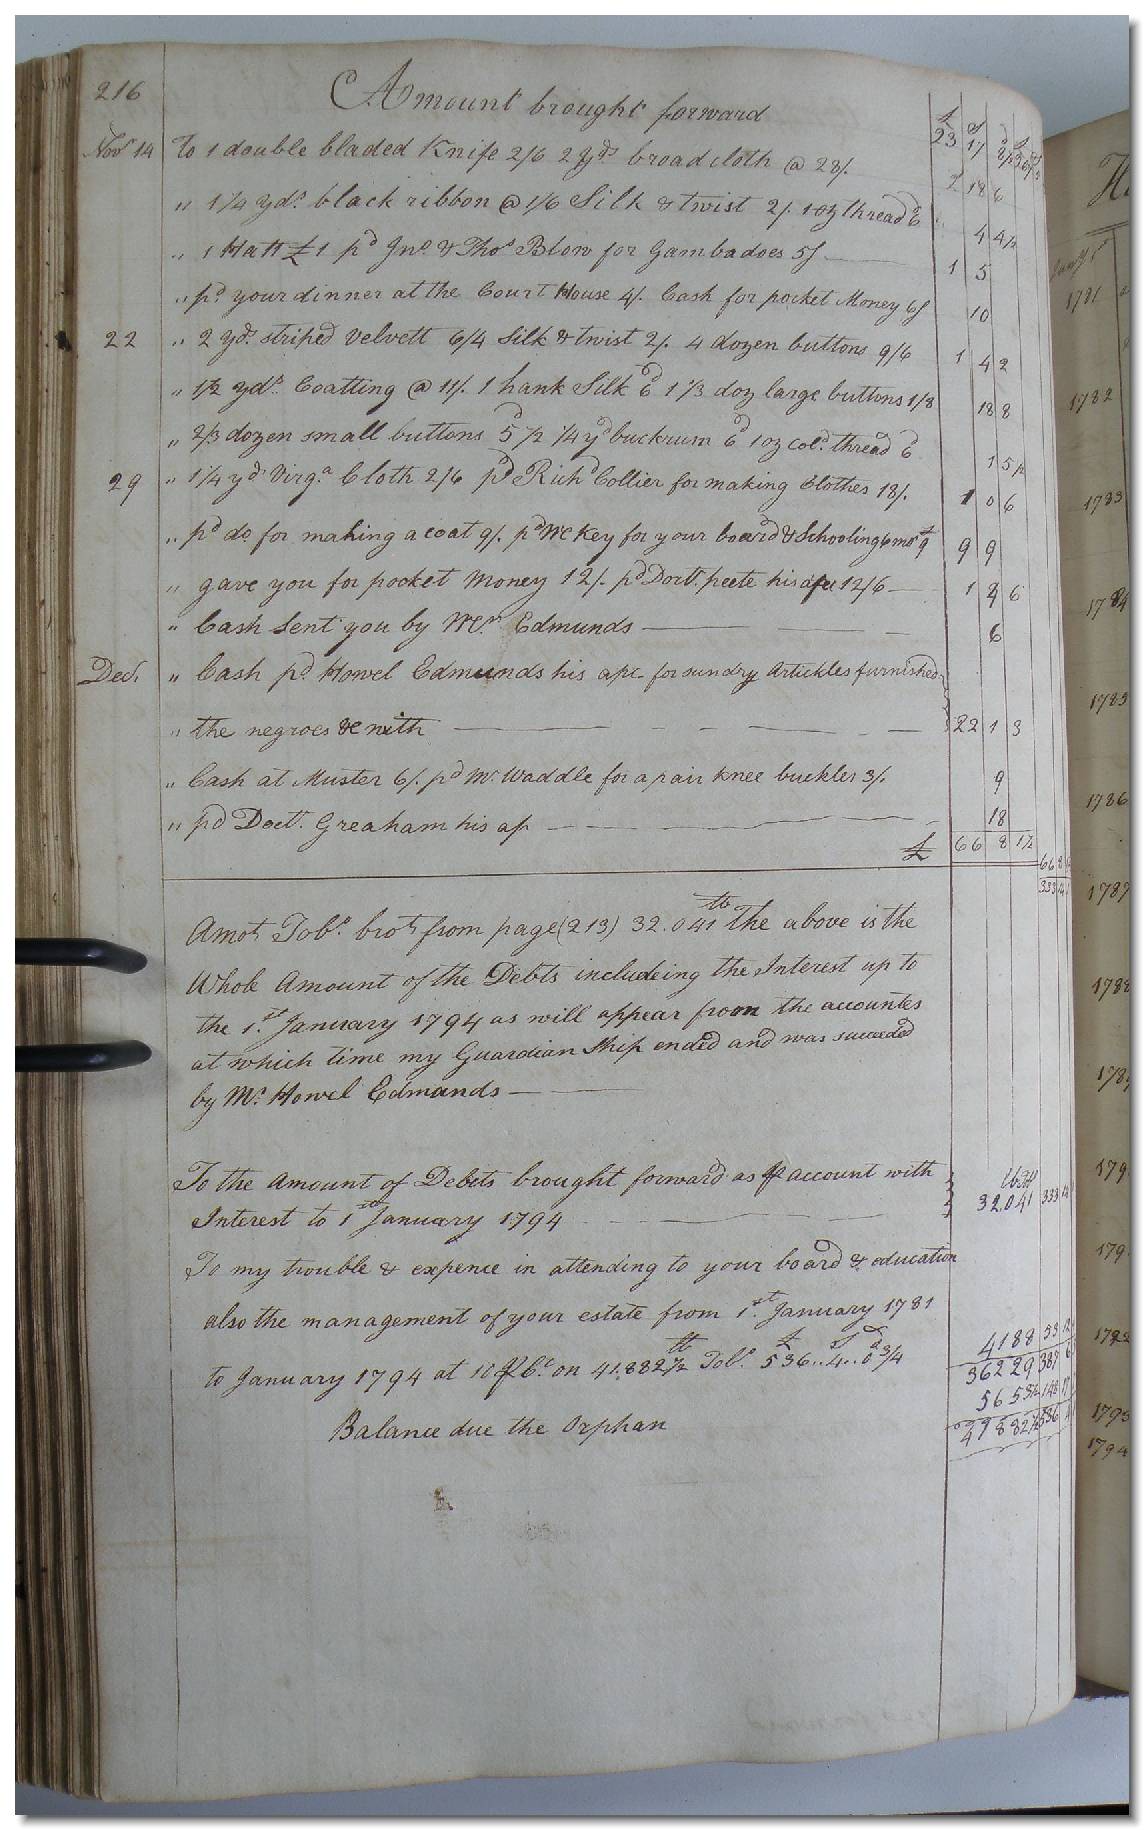 216 Amount brought forward £ 23 17
Novr 14 To 1 double bladed Knife 2/6 2 yds broad cloth @ 28/. 2 18 6
" 1 1/4 yds. black ribbon @ 1/6 Silk & twist 2/. 1 oz thread 6d 4 4½
" 1 Hatt £1 pd Jno & Thos Blow for Gambadoes 5/ 1 5
" pd. your dinner at the Court House 4/. Cash for pocket Money 6/ 10
22 " 2 yds. striped Velvett 6/4 Silk & twist 2/. 4 dozen buttons 9/6 1 4 2
" 1½ yds. Coatting @ 11/. 1 hank Silk 6d 1 1/3 doz large buttons 1/8 18 8
" 2/3 dozen small buttons 5d½ 1/4 yd buckrum 6d 1 oz cold. thread 6d 1 5½
29 " 1 1/4 yd Virga. Cloth 2/6 pd Richd Collier for making Clothes 18/. 1 0 6
" pd do. for making a coat 9/. pd McKey for your board & Schooling 6 mos £9 9 9
" gave you for pocket Money 12/. pd Doct. peete his 12/6 1 4 6
" Cash Sent you by Mr. Edmunds 6
Decr. " Cash pd. Howel Edmunds his apt. for sundry Artickles furnished
" the negroes &c with 22 1 3
" Cash at Muster 6/. pd Mr. Waddle for a pair knee buckles 3/. 9
" pd Doct. Greaham his ap 18
£ 66 8 1½
Amot. Tobo. brot. from page (213) 32.041 lb the above is the
Whole Amount of the Debts includeing the Interest up to
the 1st. January 1794 as will appear from the accountes
at which time my Guardian Ship ended and was succeeded
by Mr. Howel Edmunds
To the Amount of Debits brought forward as pr account with
Interest to 1st January 1794 32.041 333
To my trouble & expence in attending to your board & education
also the management of your estate from 1st. January 1781
to January 1794 at 10 pr Ct. on 41.882½ lb Tobo. £536..4..0¾ 4188 53
36229 387
Balance due the Orphan 5653½ 148
41882½ 536
1781
1782
1783
1784
1785
1786
1787
1788
1795
1794